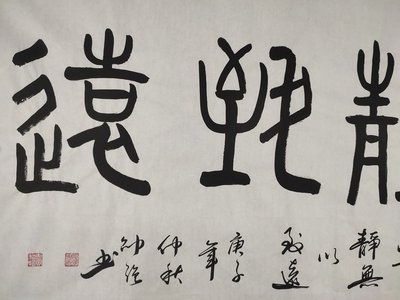 靜致遠
靜無
以
致遠
庚子
年
仲秋
书